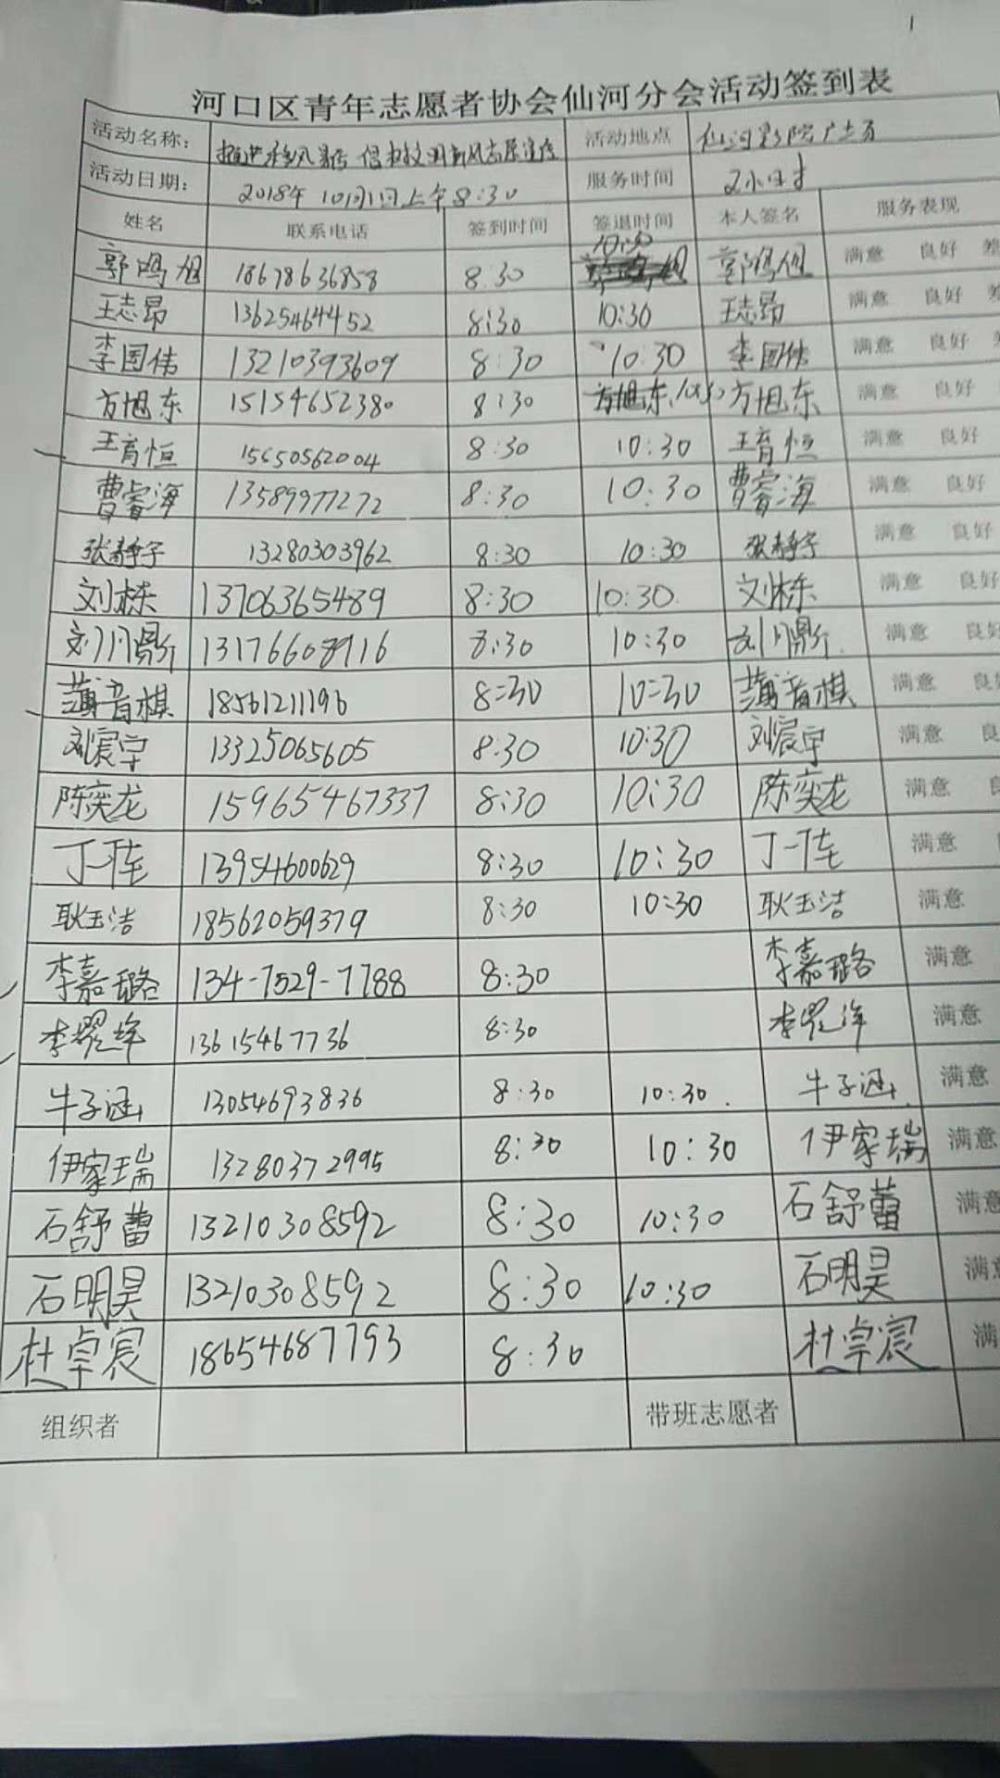 1
河口区青年志愿者协会仙河分会活动签到表
活动名称： 活动地点 仙河影院广场
活动日期： 2018年10月1日上午8:30 服务时间 2小时
姓名 联系电话 签到时间 签退时间 本人签名 服务表现
郭鸣旭 18678636858 8:30 10:30 郭鸣旭 满意 良好 差
王志昂 13625464452 8:30 10:30 王志昂 满意 良好 差
李国伟 13210393609 8:30 10:30 李国伟 满意 良好
方旭东 15154652380 8:30 方旭东 方旭东 满意 良好
王育恒 15650562004 8:30 10:30 王育恒 满意 良好
曹睿海 13589977272 8:30 10:30 曹睿海 满意 良好
张静宇 13280303962 8:30 10:30 张静宇 满意 良好
刘栋 13706365489 8:30 10:30 刘栋 满意 良好
刘川鼎 13176608916 8:30 10:30 刘川鼎 满意 良好
薄音棋 18561211196 8:30 10:30 薄音棋 满意 良好
刘宸宇 13325065605 8:30 10:30 刘宸宇 满意 良
陈奕龙 15965467337 8:30 10:30 陈奕龙 满意 良
丁一 13954600629 8:30 10:30 丁一 满意
耿玉洁 18562059379 8:30 10:30 耿玉洁 满意
李嘉璐 134-7529-7788 8:30 李嘉璐 满意
李 13615467736 8:30 李 满意
牛子涵 13054693836 8:30 10:30. 牛子涵 满意
伊家瑞 13280372995 8:30 10:30 伊家瑞 满意
石舒蕾 13210308592 8:30 10:30 石舒蕾 满意
石明昊 13210308592 8:30 10:30 石明昊 满意
杜卓宸 18654687793 8:30 杜卓宸 满
组织者 带班志愿者